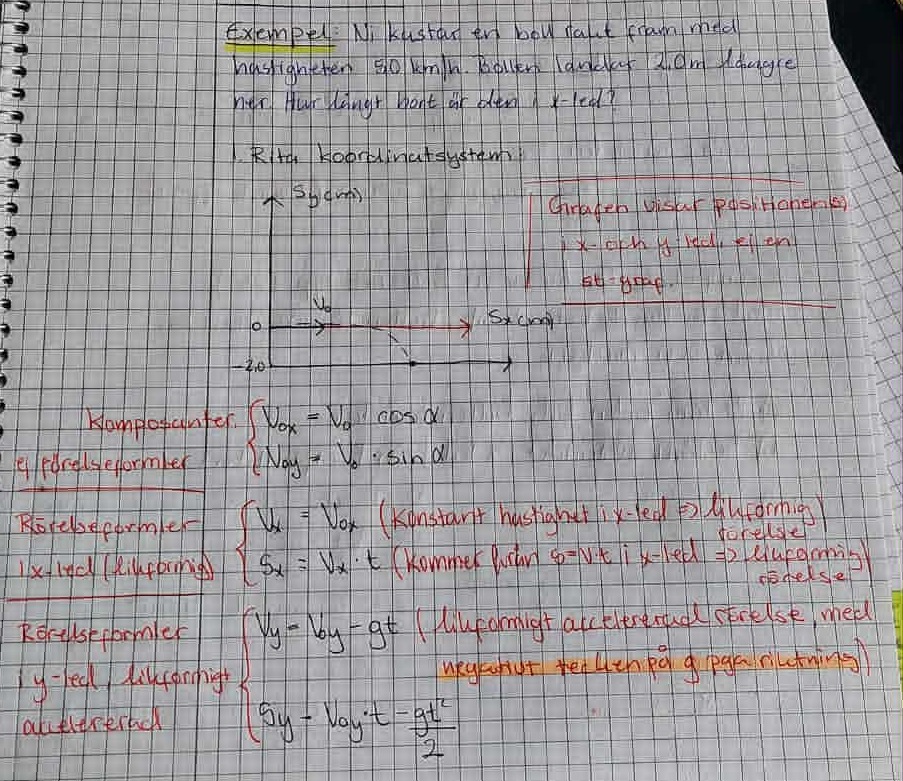 Exempel: Ni kastar en boll rakt fram med
hastigheten 80 km/h. Bollen landar 2,0m längre
ner. Hur långt bort är den i x-led?
1. Rita koordinatsystem:
Sy(m)
Grafen visar positionen(s)
i x- och y led, ej en
st-graf.
V₀
0
Sx(m)
-2,0
Komposanter
ej rörelseformler
V₀ₓ = V₀ · cos α
V₀y = V₀ · sin α
Rörelseformler
i x-led (likformig)
Vₓ = V₀ₓ (Konstant hastighet i x-led => likformig
rörelse)
Sₓ = Vₓ · t (kommer från s=v·t i x-led => likformig
rörelse)
Rörelseformler
i y-led, likformigt
accelererad
Vy = V₀y - gt (likformigt accelererad rörelse, med
negativt tecken på g pga riktning)
Sy = V₀y·t - gt²/2